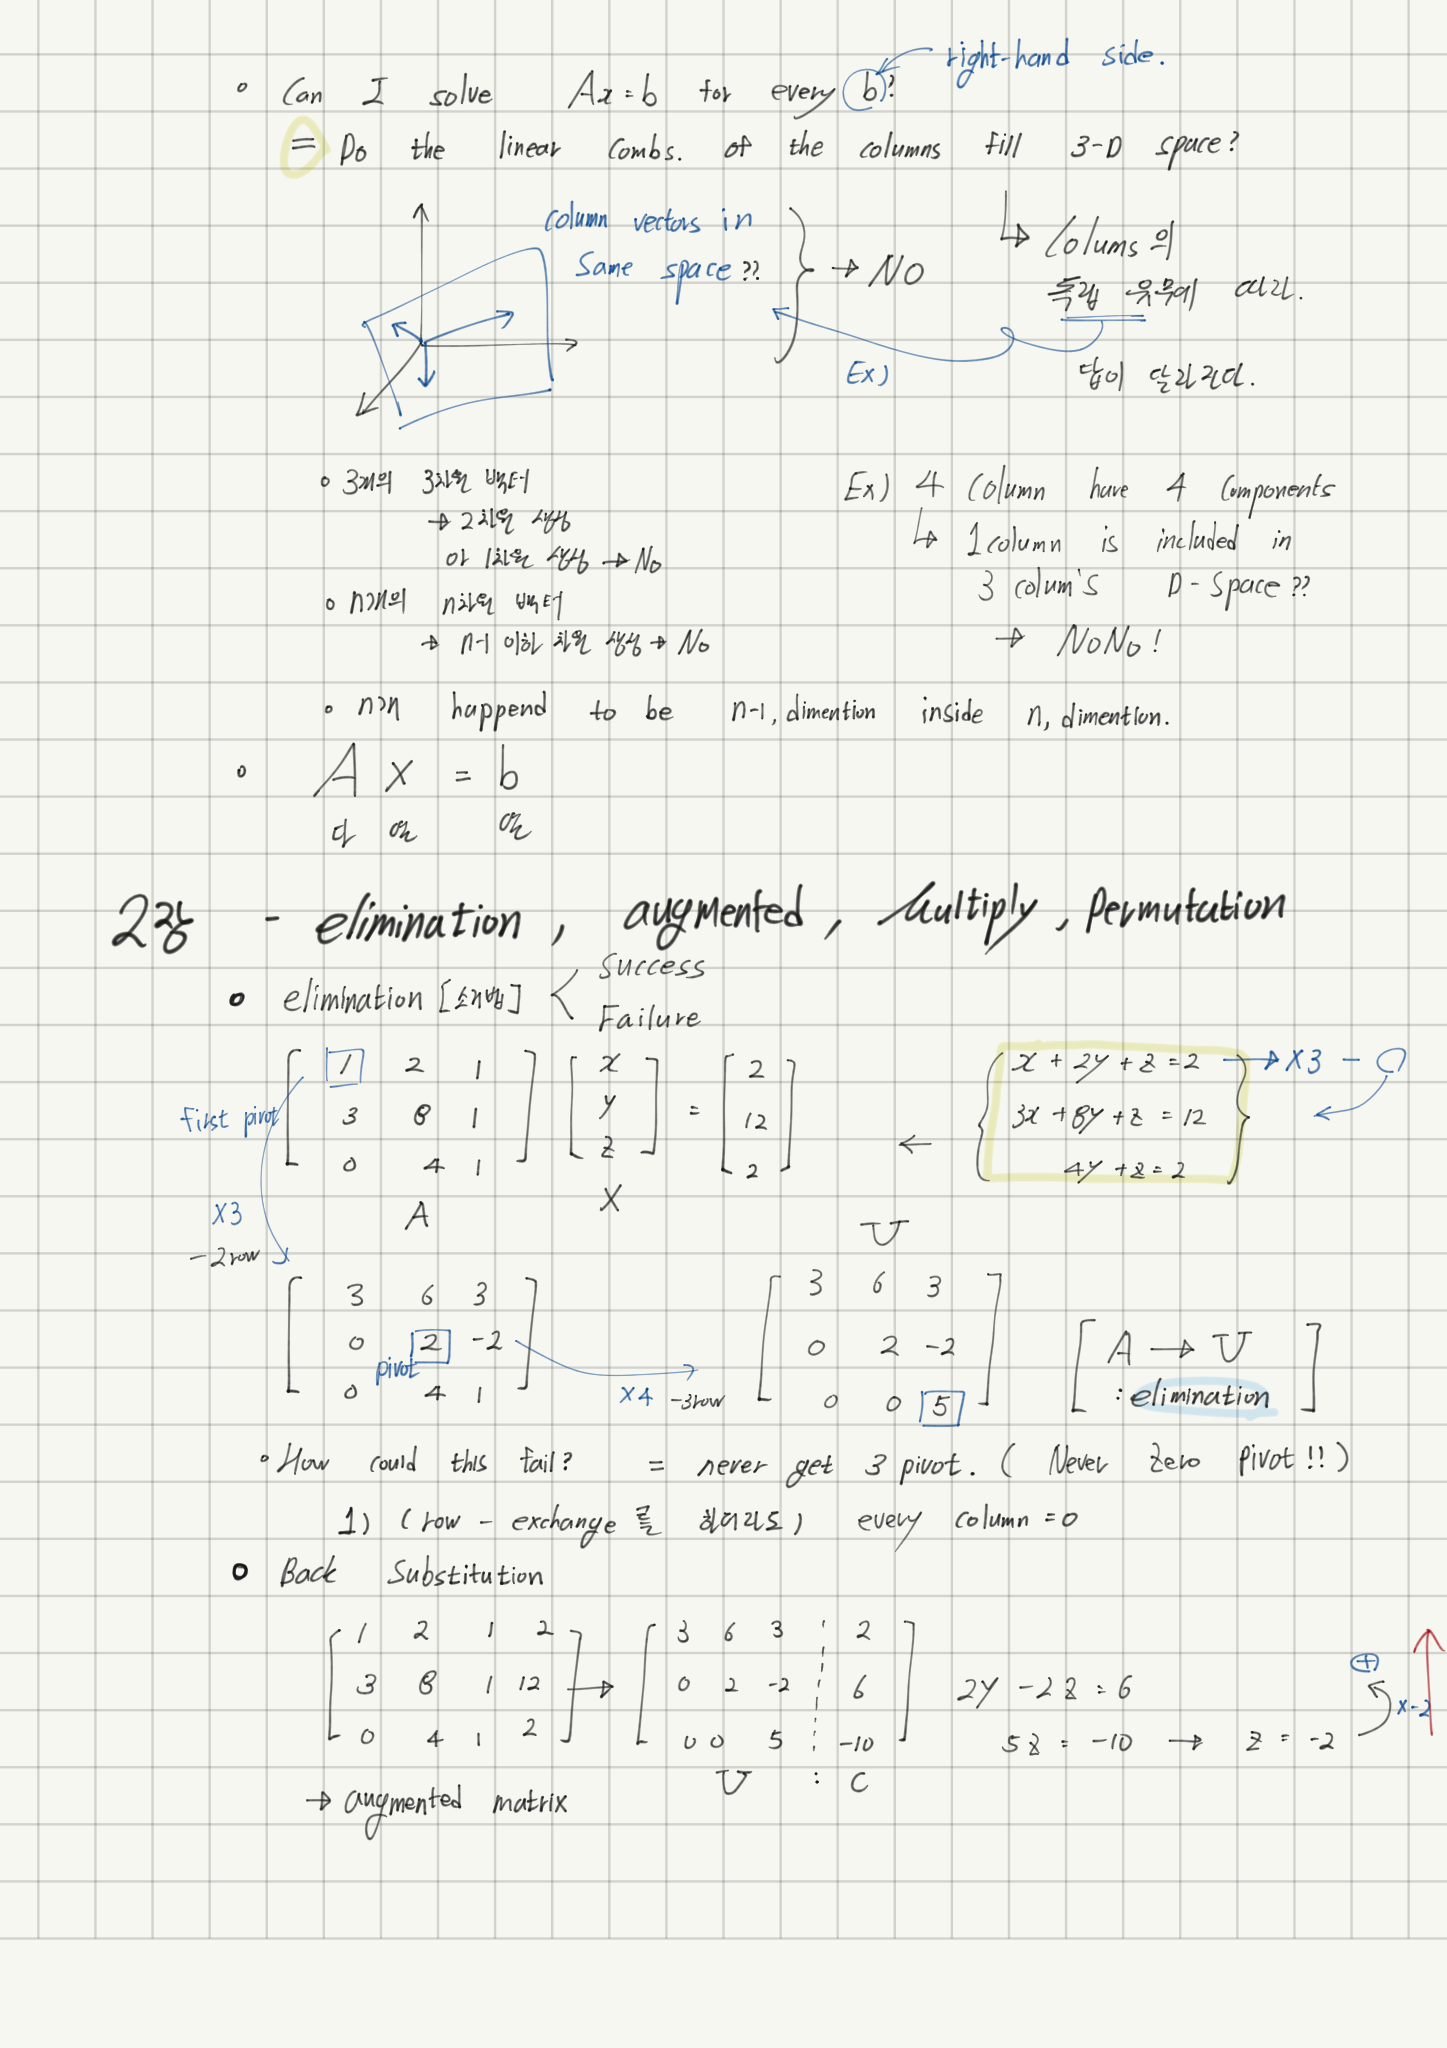 right-hand side.
◦ Can I solve Ax = b for every b?
= Do the linear combs. of the columns fill 3-D space?
column vectors in
same space ??
→ NO
↳ Colums의
독립 유무에 따라.
답이 달라진다.
Ex)
◦ 3개의 3차원 벡터
→ 2차원 생성
아 1차원 생성 → No
◦ n개의 n차원 벡터
→ n-1 이하 차원 생성 → No
Ex) 4 column have 4 components
↳ 1 column is included in
3 colum's D-space ??
→ NoNo!
◦ happend to be n-1, dimention inside n, dimention.
◦ A x = b
다 열 열
2강 - elimination, augmented, Multiply, Permutation
• elimination [소거법] < Success
Failure
[ 1 2 1 ] [ x ] = [ 2 ]
[ 3 8 1 ] [ y ] [ 12 ]
[ 0 4 1 ] [ z ] [ 2 ]
A X
first pivot
x3
-2row
←
x + 2y + z = 2 → x3 -
3x + 8y + z = 12
4y + z = 2
[ 3 6 3 ]
[ 0 2 -2 ]
[ 0 4 1 ]
pivot
x4 -3row
U
[ 3 6 3 ]
[ 0 2 -2 ]
[ 0 0 5 ]
[ A → U ]
: elimination
◦ How could this fail? = never get 3 pivot. ( Never Zero Pivot!! )
1) (row - exchange를 하더라도) every column = 0
• Back Substitution
[ 1 2 1 2 ] → [ 3 6 3 ¦ 2 ]
[ 3 8 1 12 ] [ 0 2 -2 ¦ 6 ] 2y - 2z = 6
[ 0 4 1 2 ] [ 0 0 5 ¦ -10 ] 5z = -10 → z = -2
U : C
⊕
x-2
→ augmented matrix